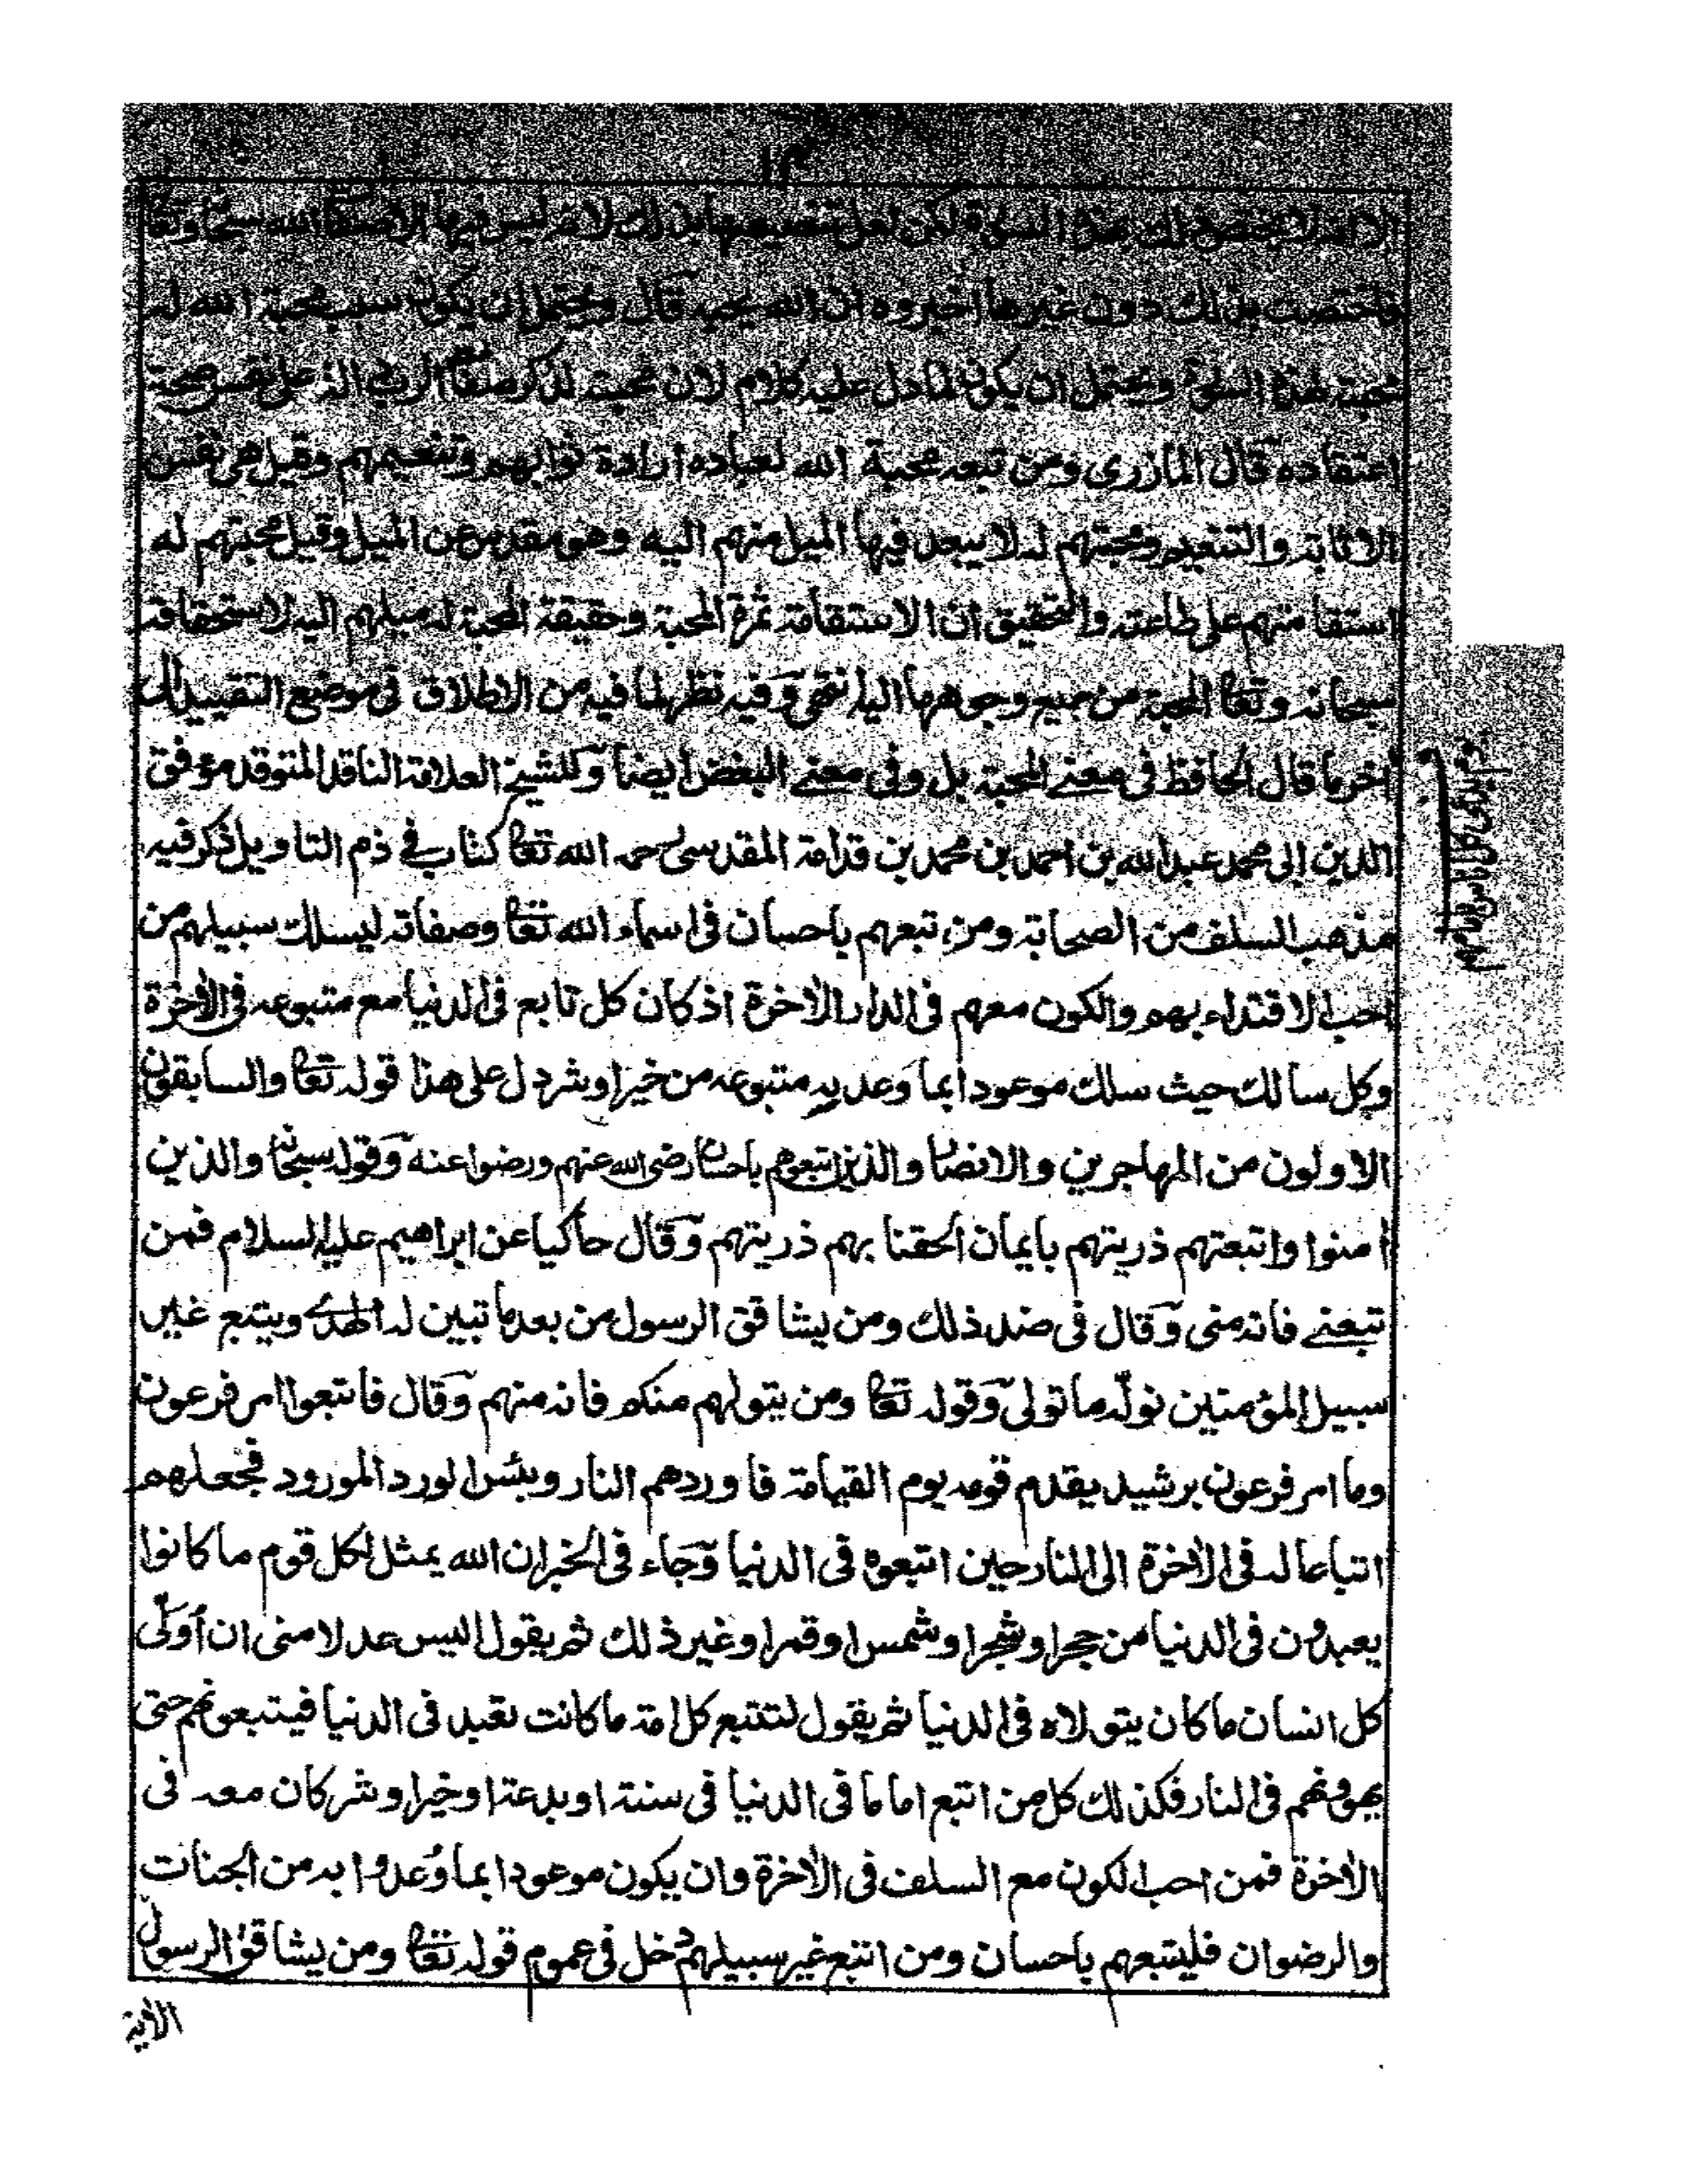 ١٣
الا انه لا يختص ذلك بهذا السورة لكن لعل تخصيصها بذلك لانه ليس فيها الا صفات الله سبحا وتعا
فاختصت بذلك دون غيرها اخبروه ان الله يحبه قال ويحتمل ان يكون سبب محبة الله له
محبته لهذا السورة ويحتمل ان يكون لما دل عليه كلامه لان محبته لذكر صفات الرب دالة على صحة
اعتقاده قال المازرى ومن تبعه محبة الله لعباده ارادة ثوابهم وتنعيمهم وقيل هى نفس
الاثابة والتنعيم ومحبتهم له لا يبعد فيها الميل منهم اليه وهو مقدس عن الميل وقيل محبتهم له
استقامتهم على طاعته والتحقيق ان الاستقامة ثمرة المحبة وحقيقة المحبة له ميلهم اليه لاستحقاقه
سبحانه وتعا المحبة من جميع وجوهها اليه انتهى وفيه نظر لما فيه من الاطلاق فى موضع التقييد الى
اخر ما قال الحافظ فى معنى المحبة بل وفى معنى البغض ايضا وللشيخ العلامة الناقد المتوقد موفق
الدين ابى محمد عبد الله بن احمد بن محمد بن قدامة المقدسى رحمه الله تعا كتاب فى ذم التاويل ذكر فيه
مذهب السلف من الصحابة ومن تبعهم باحسان فى اسماء الله تعا وصفاته ليسلك سبيلهم من
احب الاقتداء بهم والكون معهم فى الدار الاخرة اذ كان كل تابع فى الدنيا مع متبوعه فى الاخرة
وكل سالك حيث سلك موعودا بما وعد به متبوعه من خير او شر دل على هذا قوله تعا والسابقون
الاولون من المهاجرين والانصا والذين اتبعوهم باحسان رضى الله عنهم ورضوا عنه وقوله سبحا والذين
امنوا واتبعتهم ذريتهم بايمان الحقنا بهم ذريتهم وقال حاكيا عن ابراهيم عليه السلام فمن
تبعنى فانه منى وقال فى ضد ذلك ومن يشاقق الرسول من بعد ما تبين له الهدى ويتبع غير
سبيل المؤمنين نولّه ما تولى وقوله تعا ومن يتولهم منكم فانه منهم وقال فاتبعوا امر فرعون
وما امر فرعون برشيد يقدم قومه يوم القيامة فاوردهم النار وبئس الورد المورود فجعلهم
اتباعا له فى الاخرة الى النار حين اتبعوه فى الدنيا وجاء فى الخبر ان الله يمثل لكل قوم ما كانوا
يعبدون فى الدنيا من حجر او شجر او شمس او قمر او غير ذلك ثم يقول اليس عدلا منى ان أولّى
كل انسان ما كان يتولاه فى الدنيا ثم يقول لتتبع كل امة ما كانت تعبد فى الدنيا فيتبعونهم حتى
يهوونهم فى النار فكذلك كل من اتبع اماما فى الدنيا فى سنة او بدعة او خير او شر كان معه فى
الاخرة فمن احب الكون مع السلف فى الاخرة وان يكون موعودا بما وُعدوا به من الجنات
والرضوان فليتبعهم باحسان ومن اتبع غير سبيلهم دخل فى عموم قوله تعا ومن يشاقق الرسول
الاية